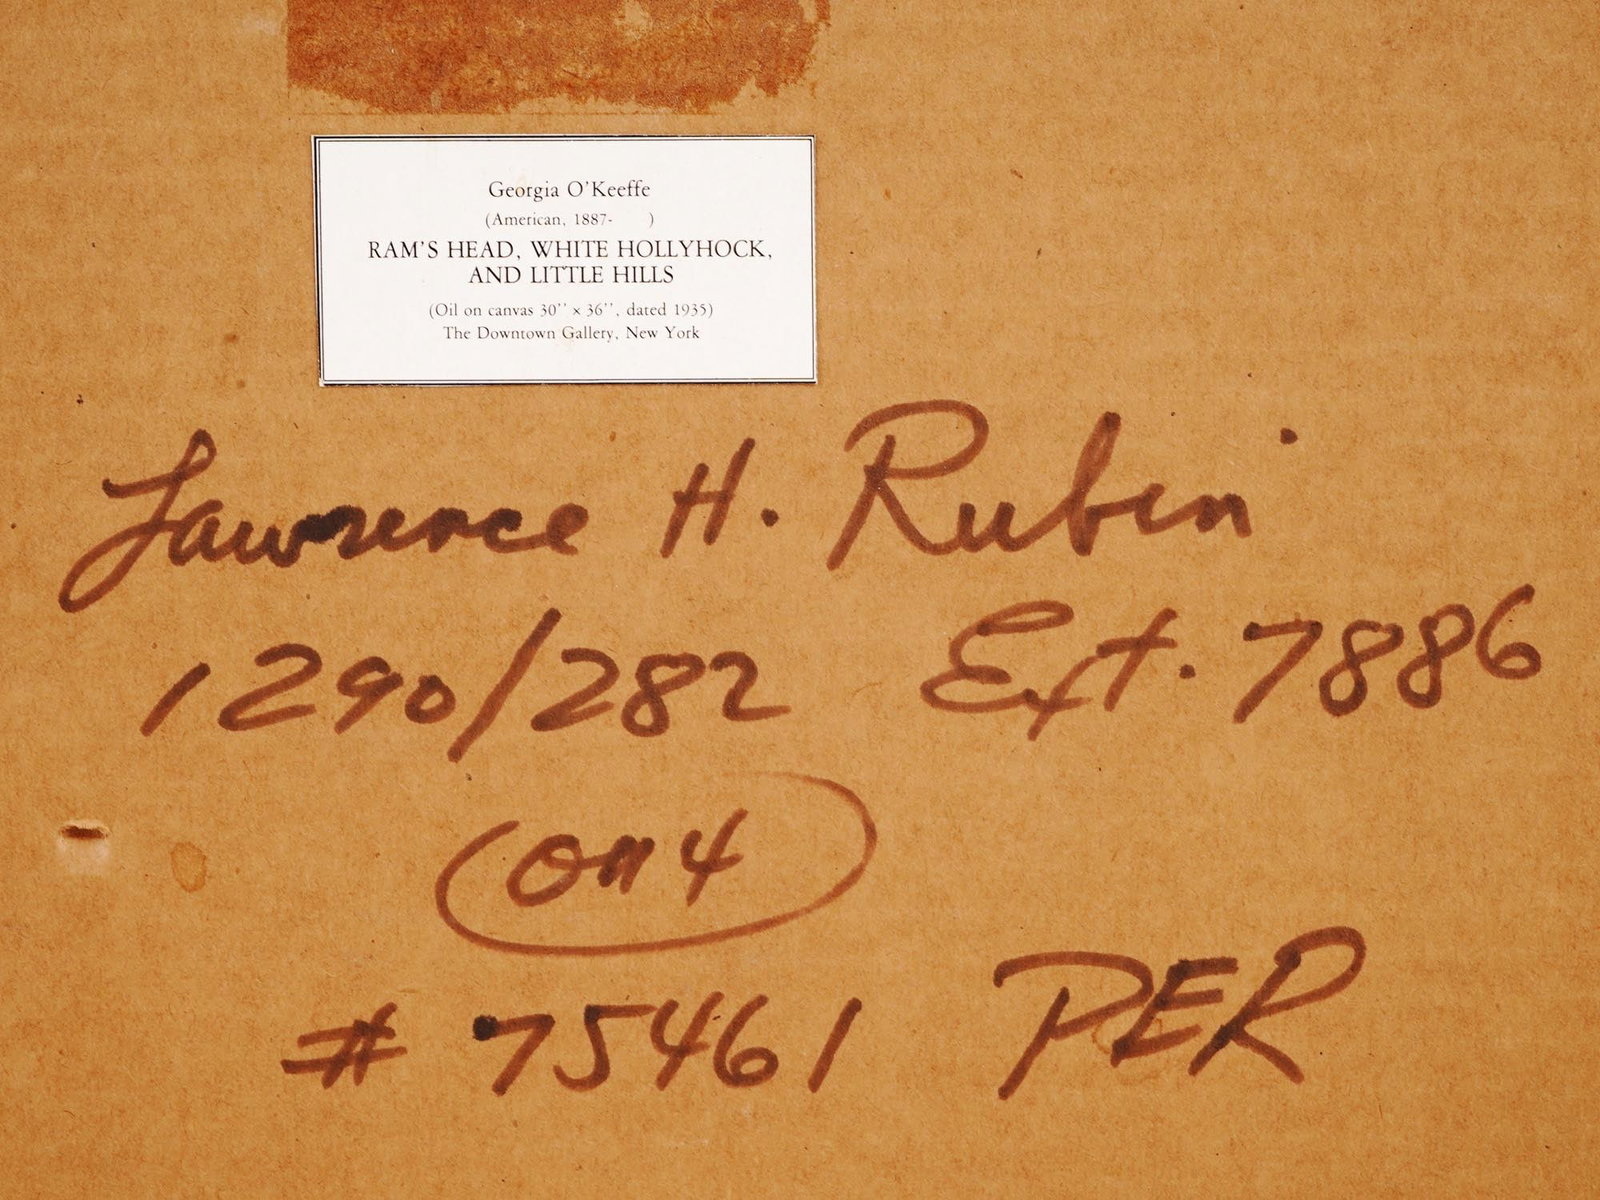 Georgia O'Keeffe
(American, 1887- )
RAM'S HEAD, WHITE HOLLYHOCK,
AND LITTLE HILLS
(Oil on canvas 30'' × 36'', dated 1935)
The Downtown Gallery, New York
Lawrence H. Rubin
1290/282 Ext. 7886
on 4
# 75461 PER